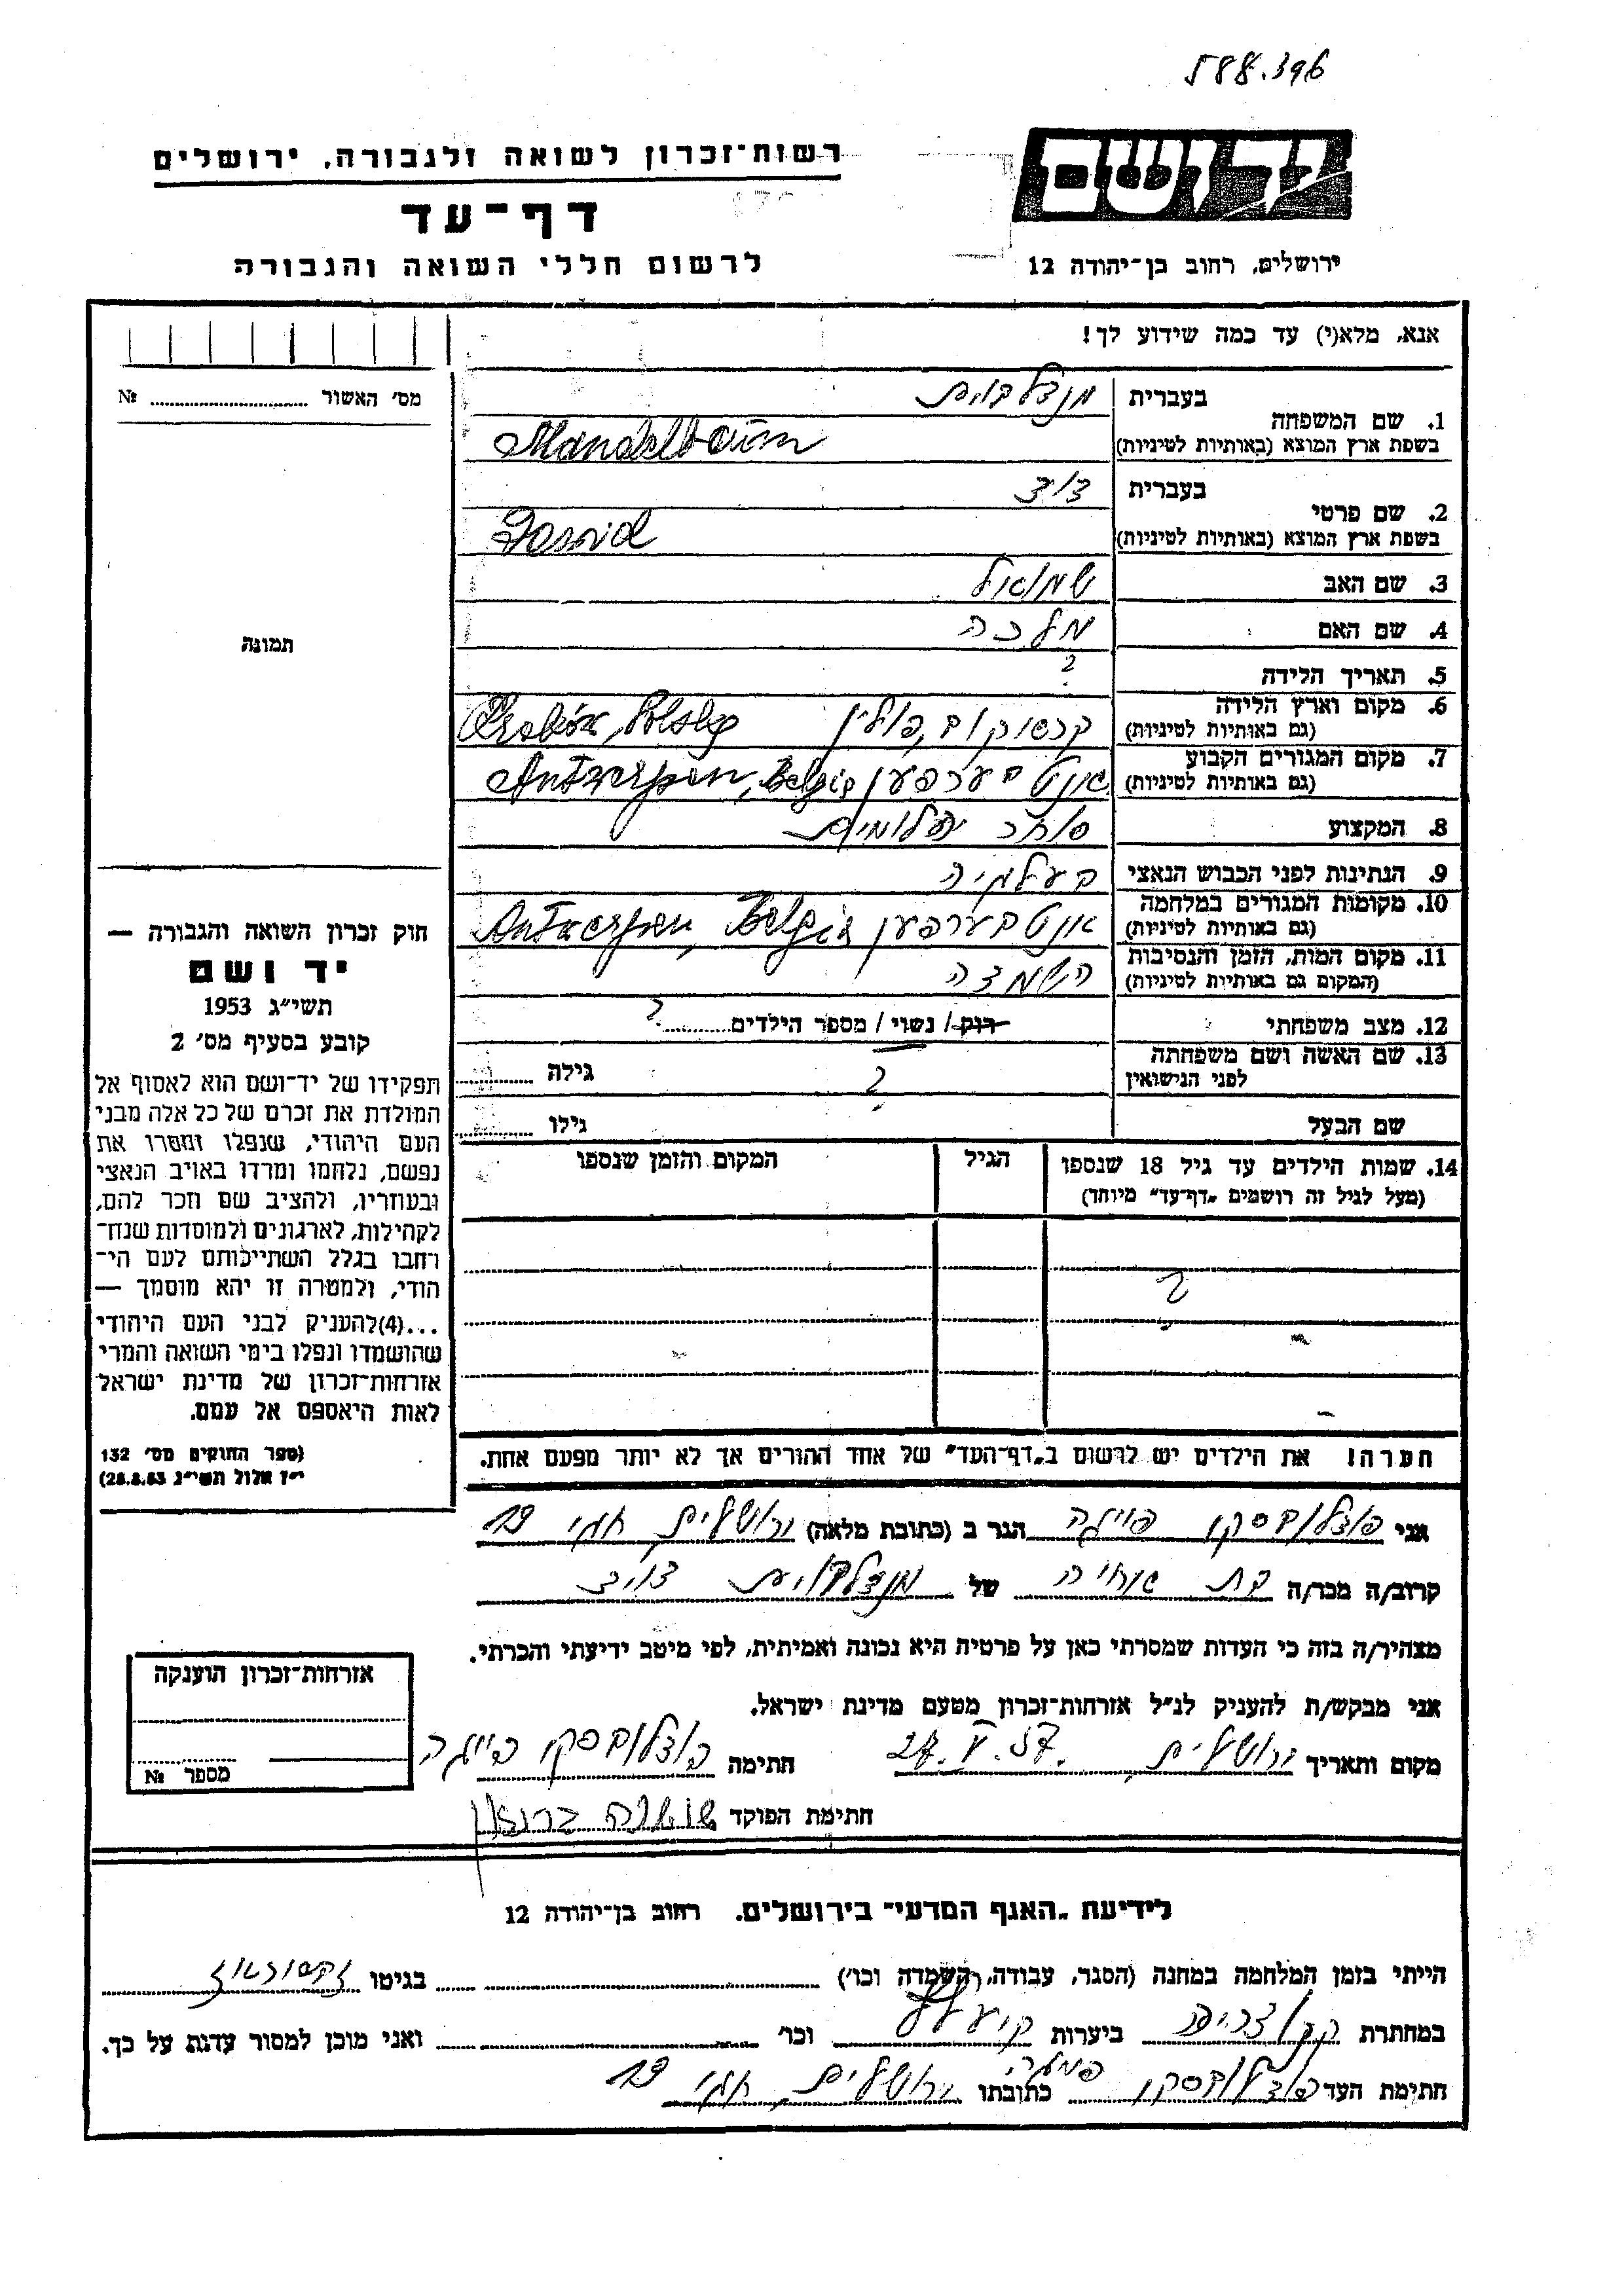 588.396
רשות־זכרון לשואה ולגבורה, ירושלים
יד ושם
דף־עד
לרשום חללי השואה והגבורה
ירושלים, רחוב בן־יהודה 12
אנא, מלא(י) עד כמה שידוע לך!
מס׳ האשור № 
1. שם המשפחה בעברית מנדלבוים
בשפת ארץ המוצא (באותיות לטיניות) Mandelbaum
2. שם פרטי בעברית דוד
בשפת ארץ המוצא (באותיות לטיניות) Dawid
3. שם האב שמואל
4. שם האם מלכה
5. תאריך הלידה ?
6. מקום וארץ הלידה (גם באותיות לטיניות) פולין Kraków, Polska
7. מקום המגורים הקבוע (גם באותיות לטיניות) אנטבערפען Antwerpen, Belgia
8. המקצוע סוחר יהלומים
9. הנתינות לפני הכבוש הנאצי בעלגיה
10. מקומות המגורים במלחמה (גם באותיות לטיניות) אנטבערפען Antwerpen, Belgia
11. מקום המות, הזמן והנסיבות (המקום גם באותיות לטיניות) השמדה
12. מצב משפחתי רוק / נשוי / מספר הילדים ?
13. שם האשה ושם משפחתה לפני הנישואין ? גילה
שם הבעל גילו
14. שמות הילדים עד גיל 18 שנספו הגיל המקום והזמן שנספו
(מעל לגיל זה רושמים „דף־עד״ מיוחד)
?
תמונה
חוק זכרון השואה והגבורה —
יד ושם
תשי״ג 1953
קובע בסעיף מס׳ 2
תפקידו של יד־ושם הוא לאסוף אל
המולדת את זכרם של כל אלה מבני
העם היהודי, שנפלו ומסרו את
נפשם, נלחמו ומרדו באויב הנאצי
ובעוזריו, ולהציב שם וזכר להם,
לקהילות, לארגונים ולמוסדות שנח־
רחבו בגלל השתייכותם לעם הי־
הודי, ולמטרה זו יהא מוסמך —
...(4)להעניק לבני העם היהודי
שהושמדו ונפלו בימי השואה והמרי
אזרחות־זכרון של מדינת ישראל
לאות היאספם אל עמם.
(ספר החוקים מס׳ 132
י״ז אלול תשי״ג 28.8.53)
הערה! את הילדים יש לרשום ב„דף־העד״ של אחד ההורים אך לא יותר מפעם אחת.
אני הגר ב (כתובת מלאה) ירושלים חגי 19
קרוב/ה מכר/ה בת אחיה של מנדלבוים דויד
מצהיר/ה בזה כי העדות שמסרתי כאן על פרטיה היא נכונה ואמיתית, לפי מיטב ידיעתי והכרתי.
אני מבקש/ת להעניק לנ״ל אזרחות־זכרון מטעם מדינת ישראל.
מקום ותאריך ירושלים 27.V.57. חתימה
חתימת הפוקד
אזרחות־זכרון הוענקה
מספר №
לידיעת „האגף המדעי״ בירושלים. רחוב בן־יהודה 12
הייתי בזמן המלחמה במחנה (הסגר, עבודה, השמדה וכו׳) בגיטו
במחתרת ביערות וכו׳ ואני מוכן למסור עדות על כך.
חתימת העד כתובתו ירושלים חגי 19